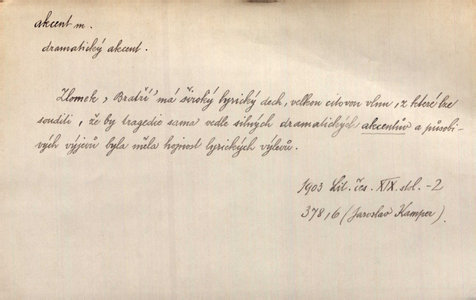 akcent m.
dramatický akcent.
Zlomek „Bratří“ má široký lyrický dech, velkou citovou vlnu, z které lze
souditi, že by tragedie sama vedle silných dramatických akcentův a působi-
vých výjevů byla měla hojnost lyrických výlevů.
1903 Lit. čes. XIX. stol. -2
378,6 (Jaroslav Kamper)